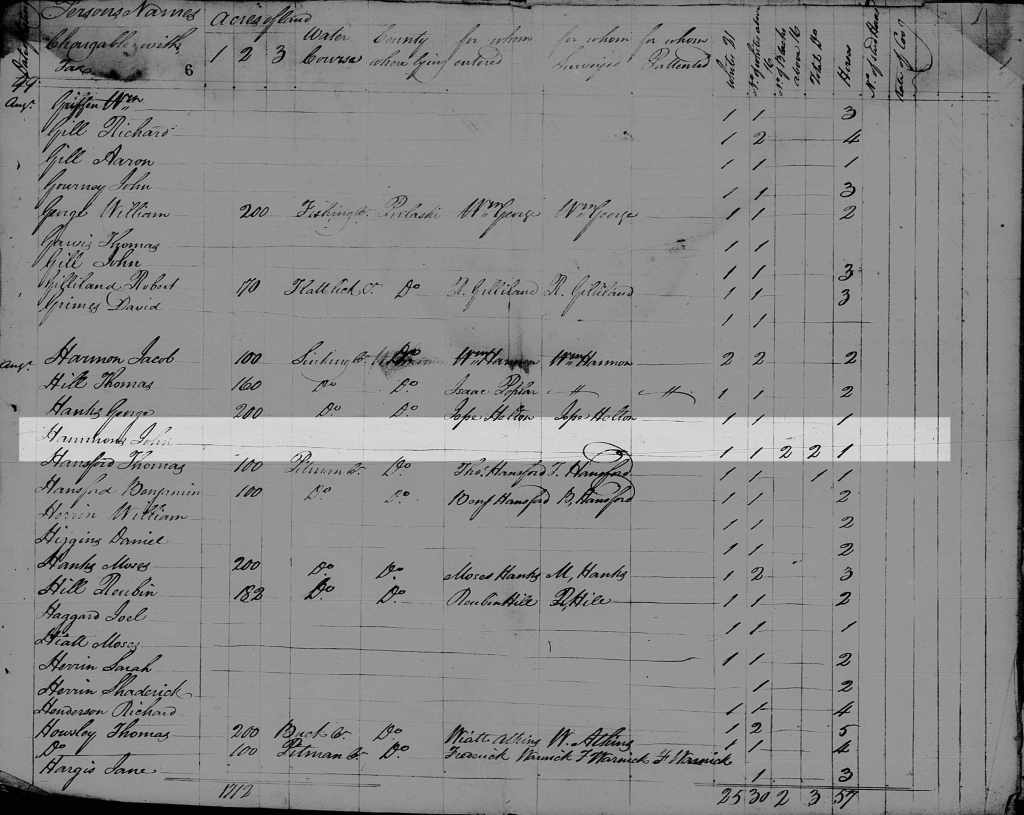 Persons Names Acres of Land Water County for whom for whom for whom 1
Chargable with 1 2 3 Course where lying entered Surveyed Pattented White 21 Horses
Tax 6
Augt Griffin Wm 1 1 3
Gill Richard 1 2 4
Gill Aaron 1 1 1
Gourney John 1 1 3
George William 200 Fishing Cr. Pulaski Wm George Wm George 1 1 2
Garvis Thomas 1 1
Gill John 1 1 3
Gilliland Robert 170 Flatt lick Cr. Do R. Gilliland R. Gilliland 1 1 3
Grimes David 1 1
Augt Harmon Jacob 100 Sinking Cr. Do Wm Harmon Wm Harmon 2 2 2
Hill Thomas 160 Do Do Isaac 1 1 2
Hanks George 200 Do Do Jesse Holton Jesse Holton 1 1 1
Hammons John 1 1 2 2 1
Hansford Thomas 100 Pitman Cr. Do Thos. Hansford T. Hansford 1 1 1 1
Hansford Benjamin 100 Do Do Benj Hansford B, Hansford 1 1 2
Herrin William 1 1 2
Higgins Daniel 1 1 2
Hanks Moses 200 Do Do Moses Hanks M, Hanks 1 2 3
Hill Reubin 182 Do Do Reuben Hill R, Hill 1 1 2
Haggard Joel 1 1 1
Hiatt Moses
Herrin Sarah 1 1 2
Herrin Shaderick 1 2
Henderson Richard 1 4
Housley Thomas 200 Buck Cr. Do Wiatt Atkins W. Atkins 1 2 5
Do 100 Pitman Cr. Do Frederick Warnick F Warnick F Warnick 1 1 4
Hargis Jane 1 3
1712 25 30 2 3 57